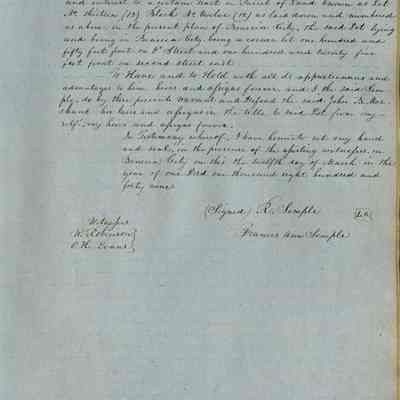 and interest to a certain tract or Parcel of Land known as Lot
No. thirteen (13) Block No. twelve (12) as laid down and numbered
as above in the present plan of Benicia City, the said Lot lying
and being in Benicia City, being a corner lot one hundred and
fifty feet front on D Street and one hundred and twenty five
feet front on second street east.
To Have and to Hold with all its appurtenances and
advantages to him heirs and assigns forever and I the said Sem-
ple, do by these presents warrant and defend the said John B.
his heirs and assigns in the title to said Lot from my-
self, my heirs and assigns forever.
In Testimony whereof, I have hereunto set my hand
and seal, in the presence of the attesting witnesses, in
Benicia City on this the twelfth day of March in the
year of our Lord one thousand eight hundred and
forty nine.
(Signed) R. Semple
Witnesses
W. Robinson
O. H. Evans
Frances Ann Semple